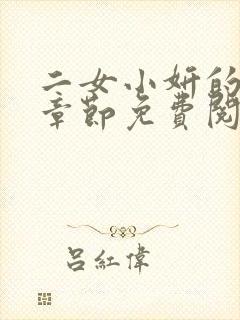 二女小妍的
章節免費閱
呂紅偉